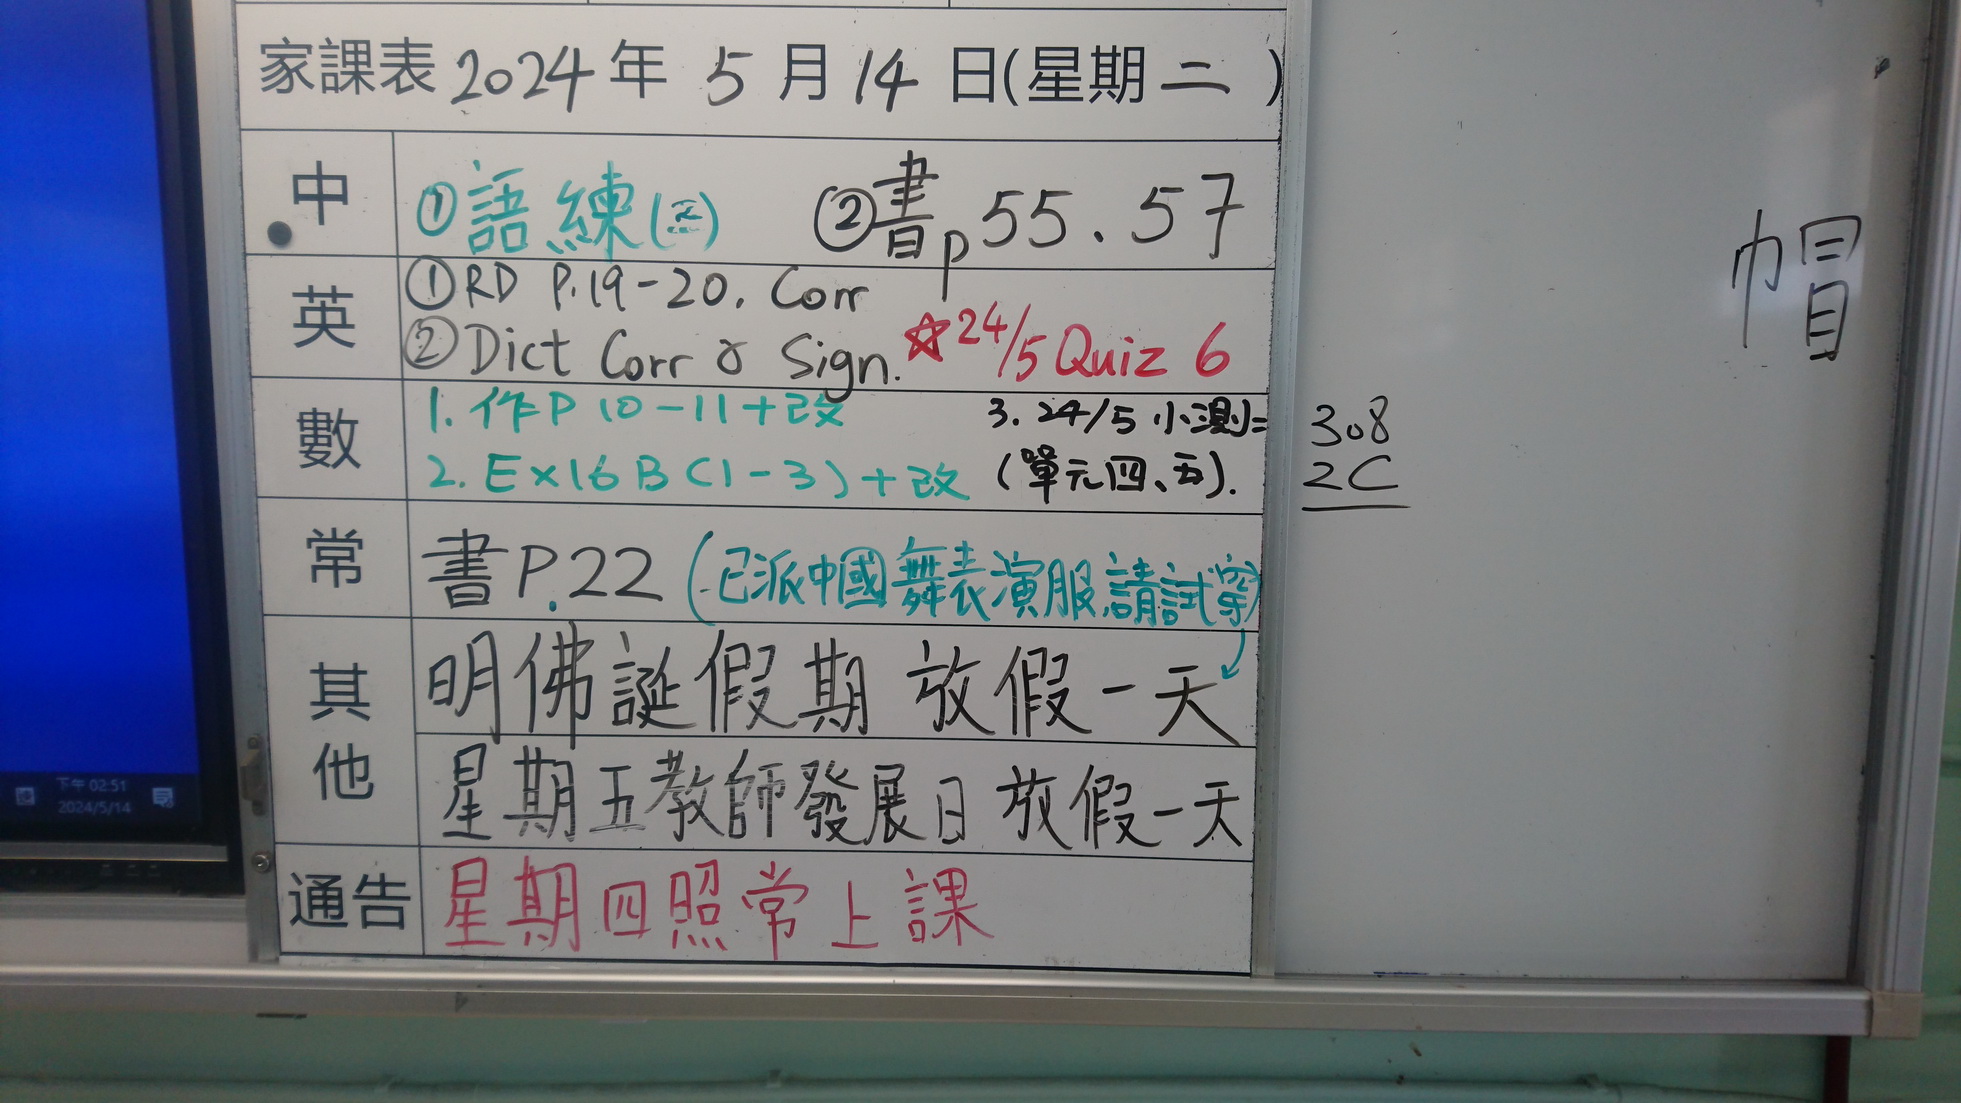 家課表 2024 年 5 月 14 日(星期 二 )
中 ①語練(二) ②書p55.57
英 ①RD P.19-20. Corr
②Dict Corr & Sign. ☆24/5 Quiz 6
數 1. 作P 10-11+改 3. 24/5 小測二
2. Ex16B(1-3)+改 (單元四、五).
常 書P.22 (已派中國舞表演服,請試穿)
其他 明佛誕假期 放假一天
星期五教師發展日 放假一天
通告 星期四照常上課
帽
308
2C
下午 02:51
2024/5/14